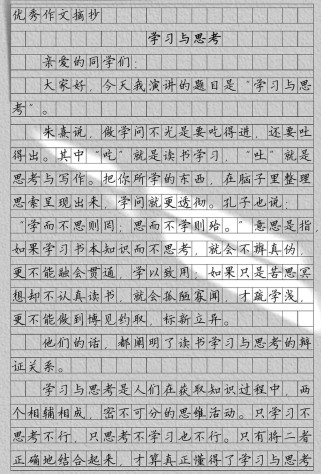 优秀作文摘抄
学习与思考
亲爱的同学们：
大家好，今天我演讲的题目是“学习与思
考”。
朱熹说，做学问不光是要吃得进，还要吐
得出。其中“吃”就是读书学习，“吐”就是
思考与写作。把你所学的东西，在脑子里整理
思索呈现出来，学问就更透彻。孔子也说：
“学而不思则罔；思而不学则殆。”意思是指，
如果学习书本知识而不思考，就会不辨真伪，
更不能融会贯通，学以致用；如果只是苦思冥
想却不认真读书，就会孤陋寡闻，才疏学浅，
更不能做到博见约取，标新立异。
他们的话，都阐明了读书学习与思考的辩
证关系。
学习与思考是人们在获取知识过程中，两
个相辅相成，密不可分的思维活动。只学习不
思考不行，只思考不学习也不行。只有将二者
正确地结合起来，才算真正懂得了学习与思考